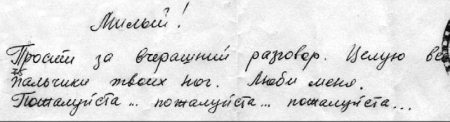 Милый!
Прости за вчерашний разговор. Целую все
пальчики твоих ног. Люби меня.
Пожалуйста... пожалуйста... пожалуйста...